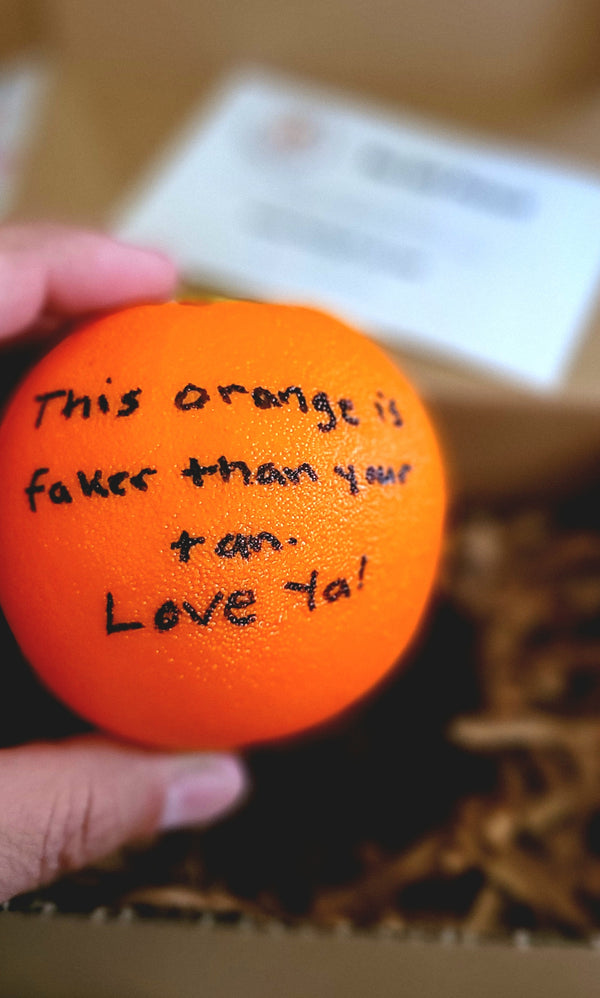 This orange is
faker than your
tan.
Love Ya!